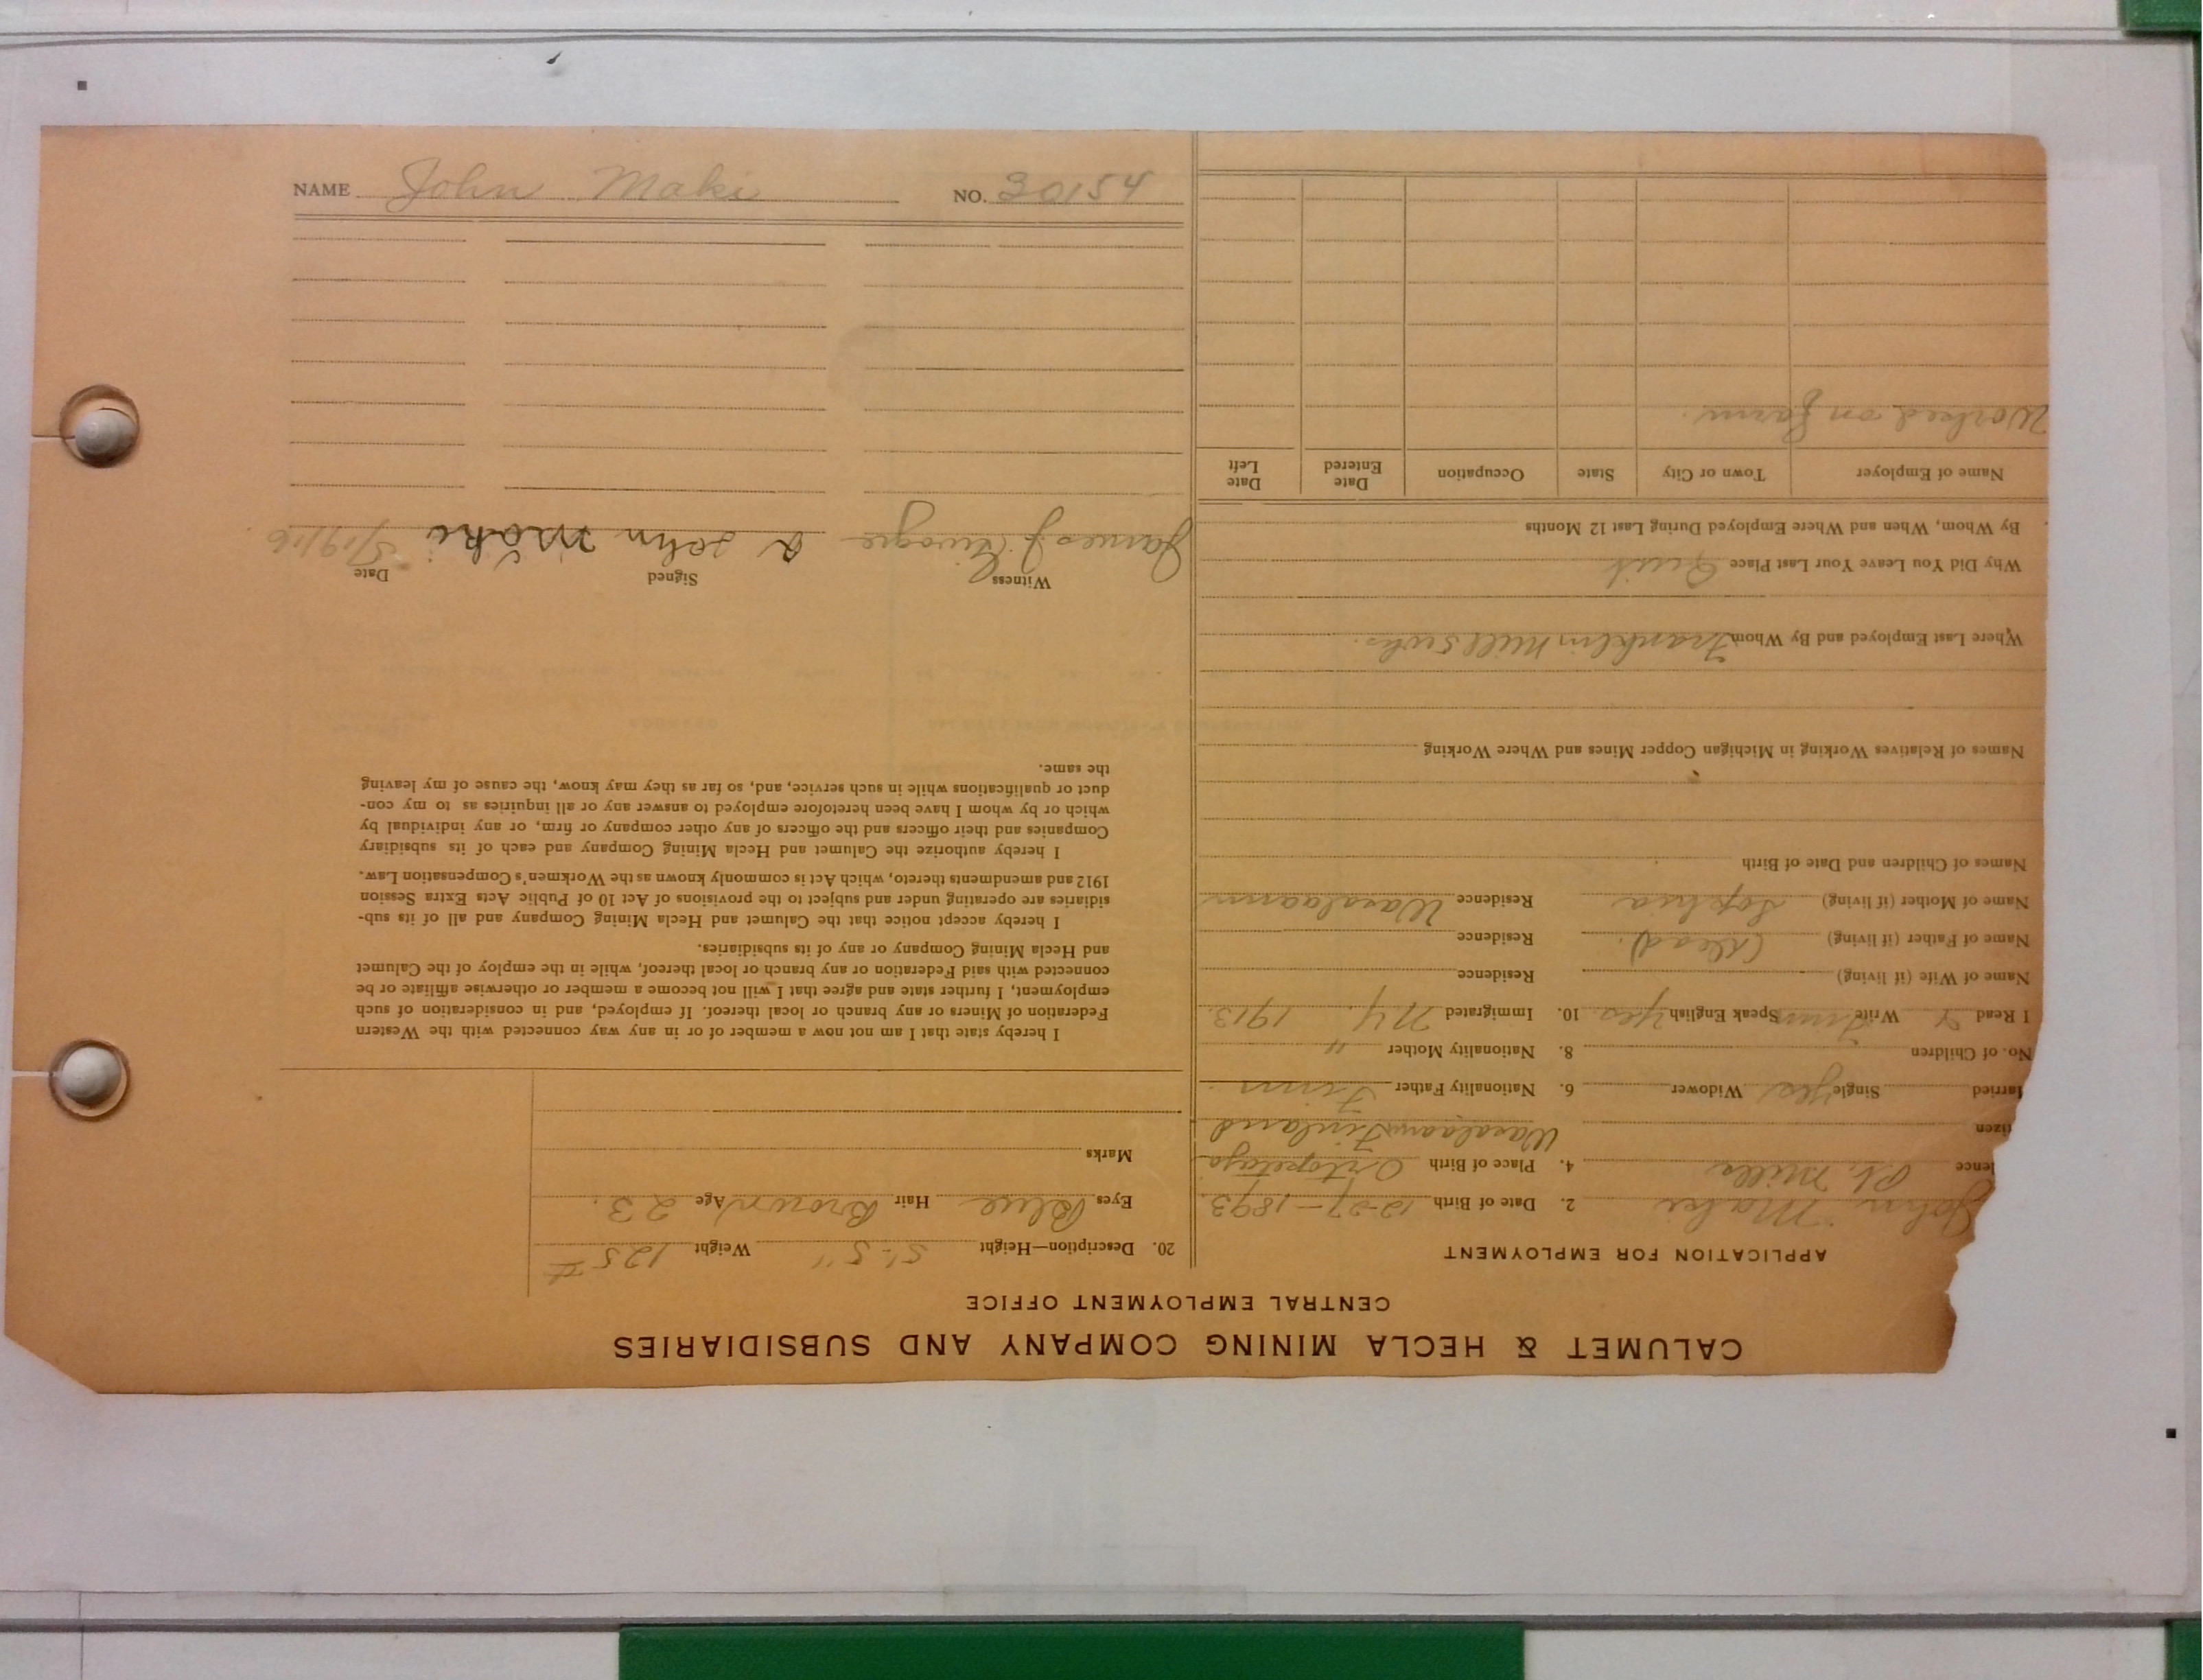 NAME John Maki NO. 30154
CALUMET & HECLA MINING COMPANY AND SUBSIDIARIES
CENTRAL EMPLOYMENT OFFICE
APPLICATION FOR EMPLOYMENT
John Maki 2. Date of Birth 12-27-1893
lence Pt. Mills 4. Place of Birth
tizen Finland
arried Single yes Widower 6. Nationality Father Finn
No. of Children 8. Nationality Mother "
I Read Y Write Finn Speak English yes 10. Immigrated N.Y. 1913.
Name of Wife (if living) Residence
Name of Father (if living) (Dead). Residence
Name of Mother (if living) Sophia Residence
Names of Children and Date of Birth
Names of Relatives Working in Michigan Copper Mines and Where Working
Where Last Employed and By Whom Franklin Mill
Why Did You Leave Your Last Place Quit
By Whom, When and Where Employed During Last 12 Months
Name of Employer Town or City State Occupation Date Entered Date Left
Worked on farm.
20. Description—Height 5'-5" Weight 125 #
Eyes Blue Hair Brown Age 23.
Marks
I hereby state that I am not now a member of or in any way connected with the Western
Federation of Miners or any branch or local thereof. If employed, and in consideration of such
employment, I further state and agree that I will not become a member or otherwise affiliate or be
connected with said Federation or any branch or local thereof, while in the employ of the Calumet
and Hecla Mining Company or any of its subsidiaries.
I hereby accept notice that the Calumet and Hecla Mining Company and all of its sub-
sidiaries are operating under and subject to the provisions of Act 10 of Public Acts Extra Session
1912 and amendments thereto, which Act is commonly known as the Workmen's Compensation Law.
I hereby authorize the Calumet and Hecla Mining Company and each of its subsidiary
Companies and their officers and the officers of any other company or firm, or any individual by
which or by whom I have been heretofore employed to answer any or all inquiries as to my con-
duct or qualifications while in such service, and, so far as they may know, the cause of my leaving
the same.
Witness Signed Date
James J. John Maki 5/19/16